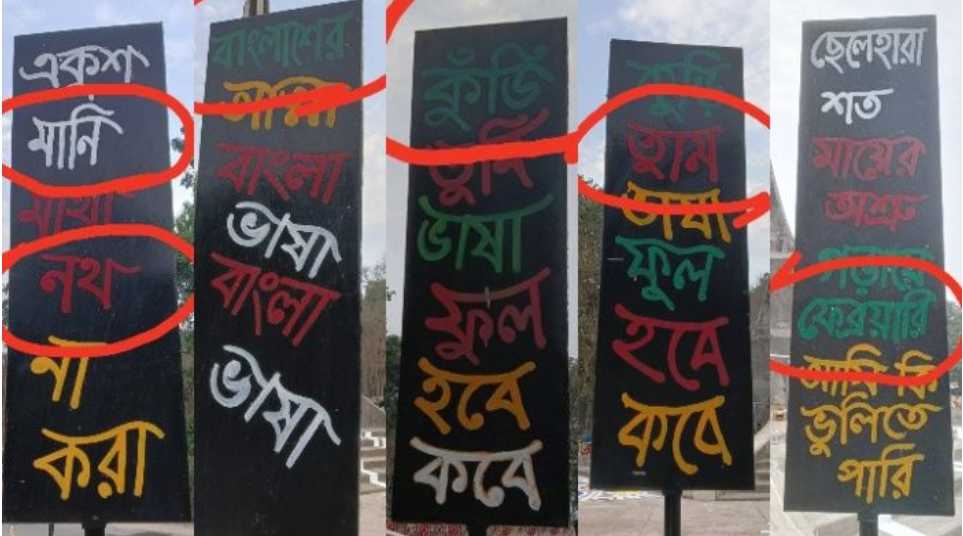 একুশ
মানি
মাথা
নথ
না
করা
বাংলাশের
আমা
বাংলা
ভাষা
বাংলা
ভাষা
কুঁড়ি
তুর্দি
ভাষা
ফুল
হবে
কবে
কুড়ি
তুাম
ভাষা
ফুল
হবে
কবে
ছেলেহারা
শত
মায়ের
অশ্রু
গড়ায়ে
ফেব্রয়ারি
আমি কি
ভুলিতে
পারি